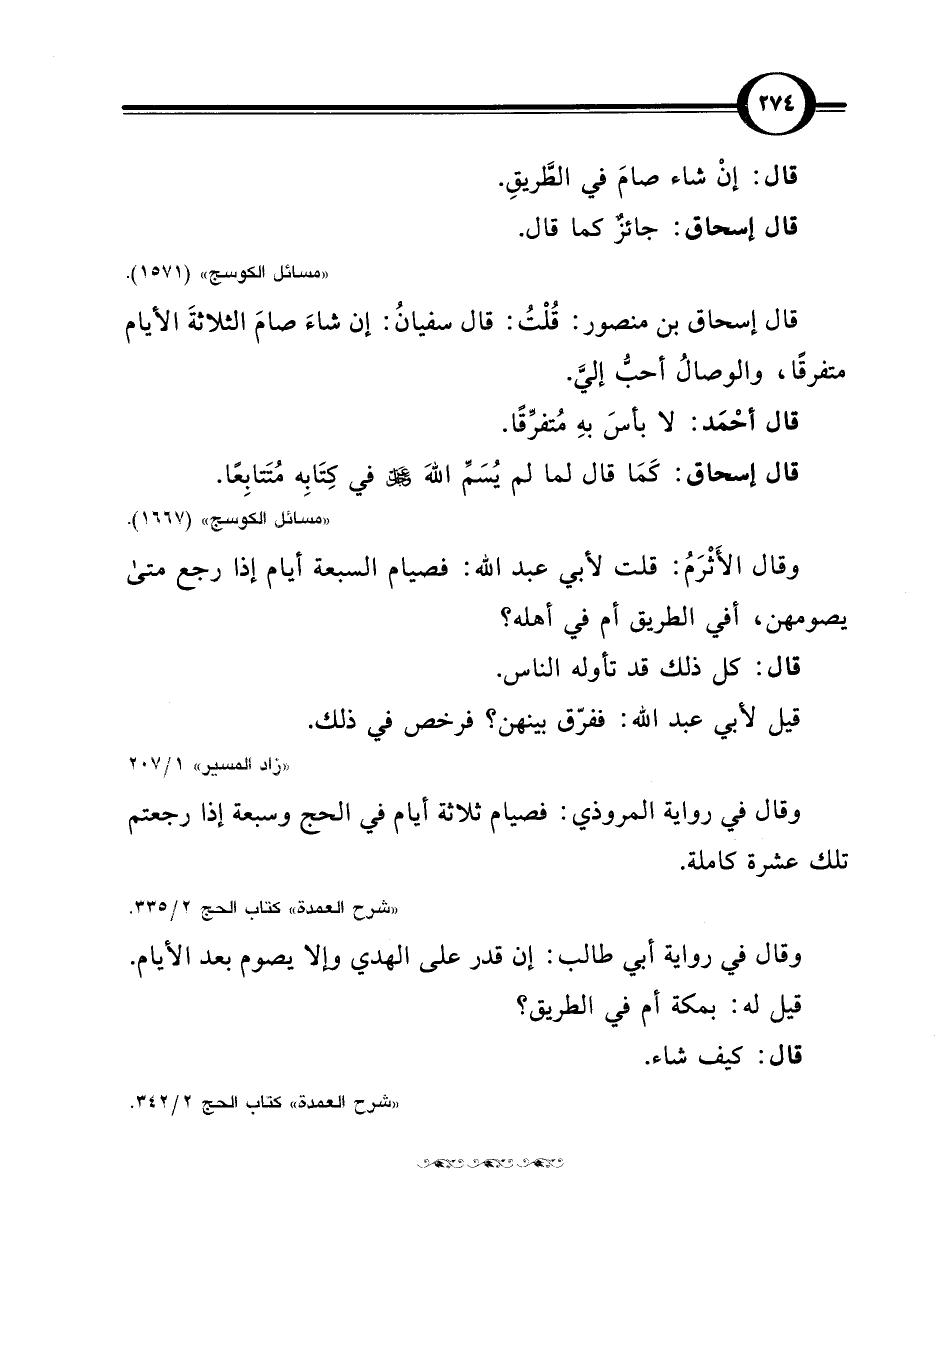 ٢٧٤
قال: إنْ شاء صامَ في الطَّريقِ.
قال إسحاق: جائزٌ كما قال.
«مسائل الكوسج» (١٥٧١).
قال إسحاق بن منصور: قُلْتُ: قال سفيانُ: إن شاءَ صامَ الثلاثةَ الأيام
متفرقًا، والوصالُ أحبُّ إليَّ.
قال أحْمَد: لا بأسَ بهِ مُتفرِّقًا.
قال إسحاق: كَمَا قال لما لم يُسَمِّ اللهَ ﷻ في كِتَابِه مُتَتابِعًا.
«مسائل الكوسج» (١٦٦٧).
وقال الأَثْرَمُ: قلت لأبي عبد الله: فصيام السبعة أيام إذا رجع متىٰ
يصومهن، أفي الطريق أم في أهله؟
قال: كل ذلك قد تأوله الناس.
قيل لأبي عبد الله: ففرّق بينهن؟ فرخص في ذلك.
«زاد المسير» ٢٠٧/١
وقال في رواية المروذي: فصيام ثلاثة أيام في الحج وسبعة إذا رجعتم
تلك عشرة كاملة.
«شرح العمدة» كتاب الحج ٣٣٥/٢.
وقال في رواية أبي طالب: إن قدر على الهدي وإلا يصوم بعد الأيام.
قيل له: بمكة أم في الطريق؟
قال: كيف شاء.
«شرح العمدة» كتاب الحج ٣٤٢/٢.